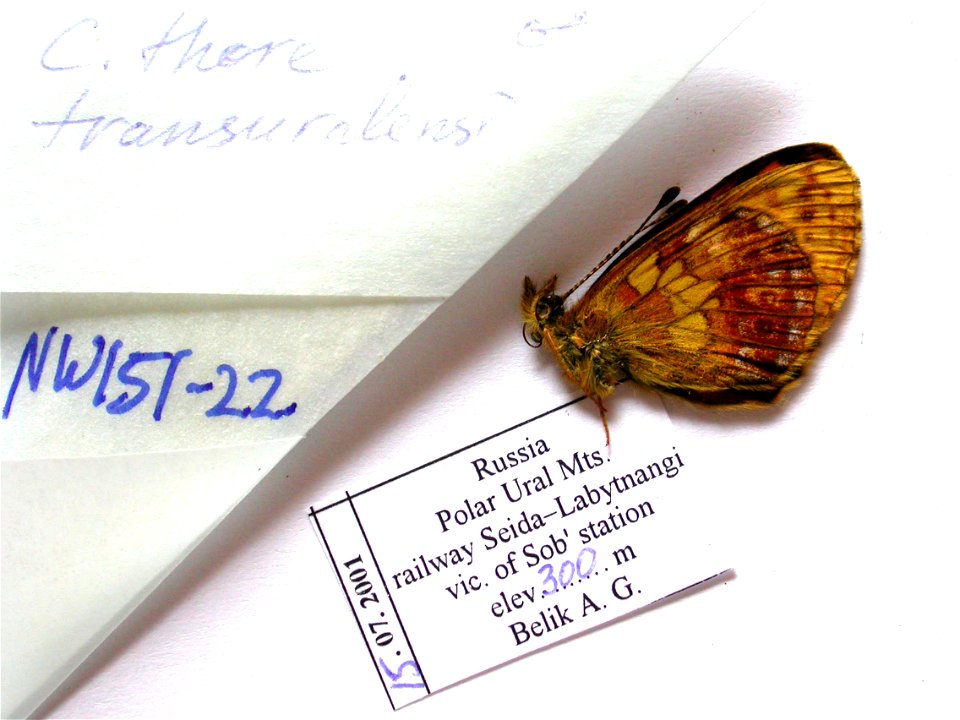 C. thore ♂
transuralensi
NW151-22.
Russia
Polar Ural Mts.
railway Seida–Labytnangi
vic. of Sob' station
elev.300...m
Belik A. G.
15.07.2001